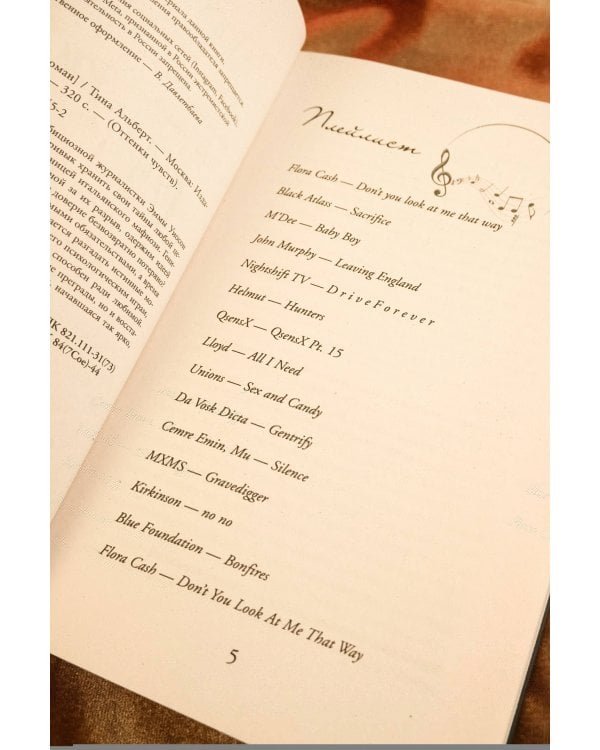 ериала данной книги,
ния правообладателя запрещается.
ния социальных сетей (Instagram, Facebook),
Meta, признанной в России экстремистской
деятельность в России запрещена.
ственное оформление — В. Давлетбаева
оман] / Тина Альберт. — Москва: Изда-
— 320 с. — (Оттенки чувств).
5-2
бициозной журналистки Эммы Уилсон
ривык хранить свои тайны любой це-
ницей итальянского мафиози, Гени-
ной за их разрыв, одержим идеей
доверие безвозвратно потеряно?
ыми обязательствами, а время
ается разгадать истинные мо-
его психологических играх,
способен ради любимой,
е преграды, но и восста-
начавшаяся так ярко,
К 821.111-31(73)
84(7Сое)-44
Плейлист
Flora Cash — Don't you look at me that way
Black Atlass — Sacrifice
M'Dee — Baby Boy
John Murphy — Leaving England
Nightshift TV — D r i v e F o r e v e r
Helmut — Hunters
QsensX — QsensX Pt. 15
Lloyd — All I Need
Unions — Sex and Candy
Da Vosk Dicta — Gentrify
Cemre Emin, Mu — Silence
MXMS — Gravedigger
Kirkinson — no no
Blue Foundation — Bonfires
Flora Cash — Don't You Look At Me That Way
5